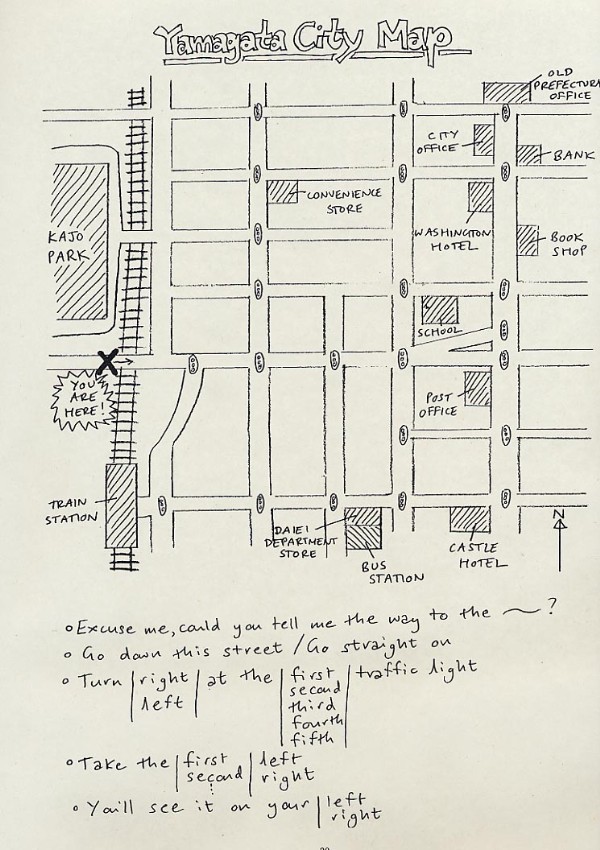 Yamagata City Map
OLD
PREFECTURA
OFFICE
CITY
OFFICE
BANK
CONVENIENCE
STORE
KAJO
PARK
WASHINGTON
HOTEL
BOOK
SHOP
SCHOOL
X
YOU
ARE
HERE!
POST
OFFICE
TRAIN
STATION
DAIEI
DEPARTMENT
STORE
BUS
STATION
CASTLE
HOTEL
N
• Excuse me, could you tell me the way to the ~ ?
• Go down this street / Go straight on
• Turn | right | at the | first | traffic light
left second
third
fourth
fifth
• Take the | first | left
second right
• You'll see it on your | left
right